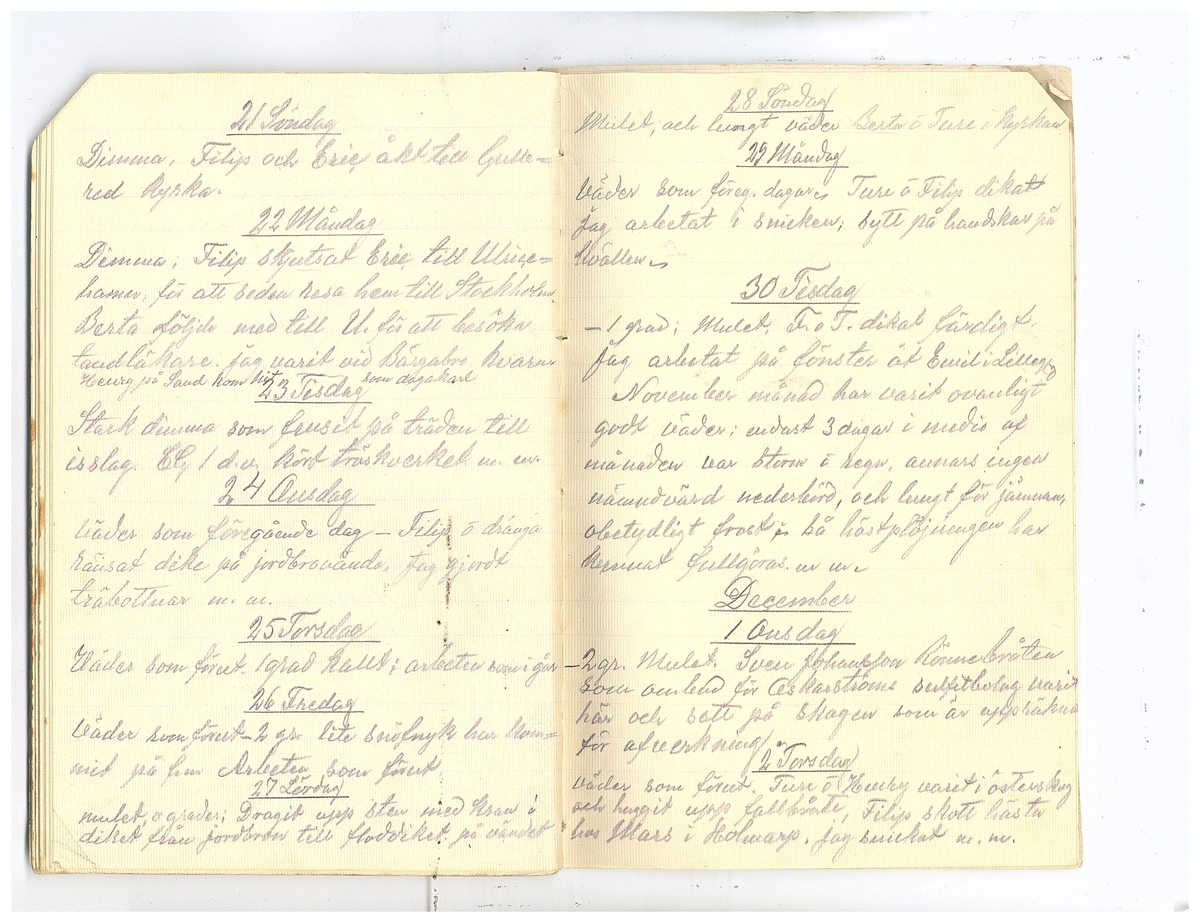 21 Söndag
Dimma, Filip och Eric åkt till Gulle=
red kyrka.
22 Måndag
Dimma; Filip skjutsat Eric till Ulrice=
hamn, för att sedan resa hem till Stockholm
Berta följde med till U. för att besöka
tandläkare. jag varit vid Bårgabro kvarn
Henry på Sand kom hit som dagakarl
23 Tisdag
Stark dimma som frusit på träden till
isslag. 1 d.v. kört tröskverket m. m.
24 Onsdag
väder som föregående dag – Filip o dränga
ränsat dike på jordbrovände. Jag gjordt
träbottnar m. m.
25 Torsdag
Väder som förut 1 grad kallt; arbeten som i går
26 Fredag
väder som förut – 2 gr. lite snöfnyk har kom=
mit på f.m. Arbeten som förut
27 Lördag
mulet, 0 grader; Dragit upp sten med kran i
diket från jordbron till floddiket på vändet
28 Söndag
Mulet, och lungt väder Berta o Ture i Kyrkan
29 Måndag
väder som föreg. dagar, Ture o Filip dikat
jag arbetat i snicken; sytt på handskar på
kvällen
30 Tisdag
– 1 grad; Mulet; F. o T. dikat färdigt.
Jag arbetat på fönster åt Emil i
November månad har varit ovanligt
godt väder; endast 3 dagar i medio af
månaden var storm o regn, annars ingen
nämnvärd nederbörd, och lungt för jämnan,
obetydligt frost så höstplöjningen har
kunnat fullgöras. m m.
December
1 Onsdag
– 2 gr. Mulet. Sven Johansson Rönnebråten
som ombud för Oskarströms sulfitbolag varit
här och sett på skogen som är uppräknad
för afverkning
2 Torsdag
väder som förut. Ture o Henry varit i österskog
och huggit upp fallbråte, Filip skott hästa
hos Mars i Holmarp. jag snickat m. m.